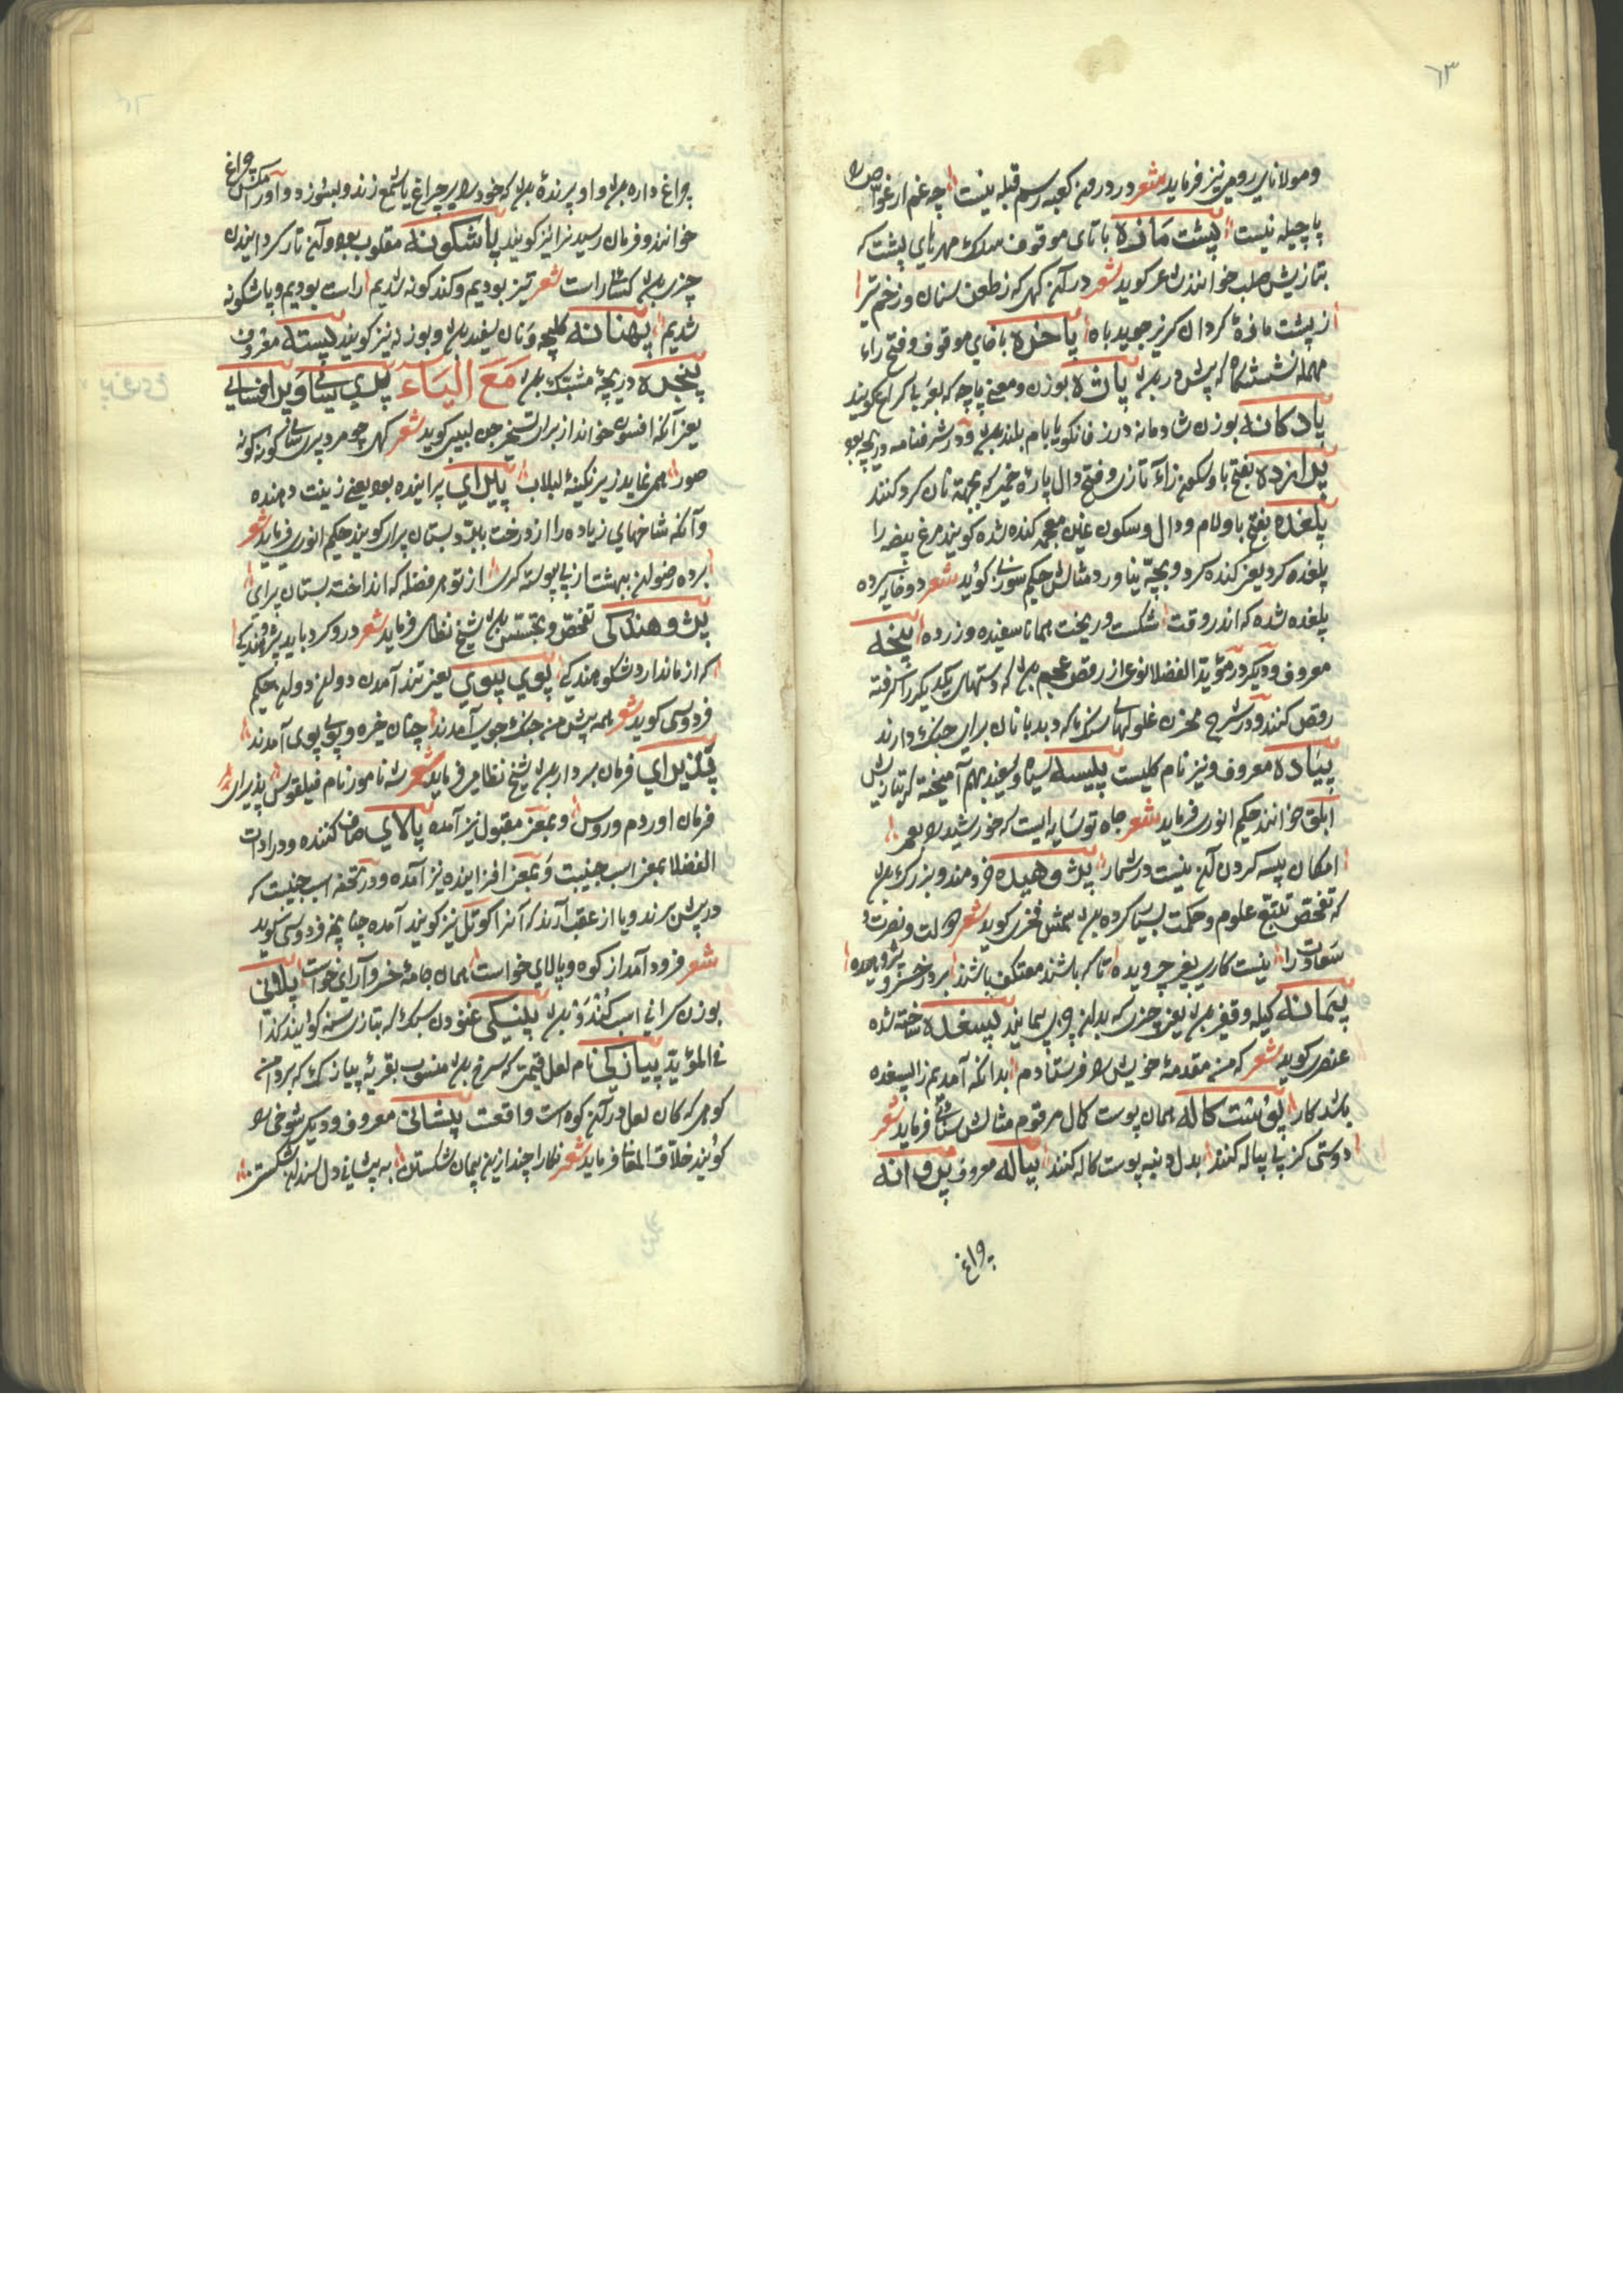 ٦٣
ومولانای رومی نیز فرماید شعر در درون کعبه رسم قبله نیست چه غم ار غواص را
پاچیله نیست پشت مازه با تای موقوف سلک مهرهای پشت که
بتازیش صلب خوانند شاعر کوید شعر در آن کهی که ز طعن سنان و زخم تیر
ز پشت مازهٔ کردان کریز جوید باه پاخره با خای موقوف و فتح راء
مهمله نشستگاه که پیش در بود پاژه بوزن ومعنی پاچه که بعربی کراع کویند
پادکانه بوزن شادمانه در زفانکویا بام بلند بود و در شرفنامه دریچه بود
پرازده بفتح با وسکون زاء تازی وفتح دال پارهٔ خمیر که بجهته نان کرد کنند
پلغده بفتح با ولام ودال وسکون غین معجمه کنده شده کویند مرغ بیضه را
پلغده کرد یعنی کنده کرد وبچه نیاورد مثالش حکیم سوزنی کوید شعر دو خایه کرده
پلغده شده که اندر وقت شکست و ریخت همانا سفیده و زرده پنجه
معروف ودیکر در مؤید الفضلا نوعی از رقص عجم بود که دستهای یکدیکر را گرفته
رقص کنند ودر شرح مخزن غلولهای سنک که دیدبانان برای جنک دارند
پیاده معروف ونیز نام کلیست پیسه سیاه وسفید بهم آمیخته که بتازیش
ابلق خوانند حکیم انوری فرماید شعر جاه تو سایه ایست که خورشید را بعمر
امکان پیسه کردن آن نیست در شمار پژوهیده خردمند وبزرک بود
که تفحص تتبع علوم وحکمت بسیار کرده بود شمس فخری کوید شعر دولت ونصرت
سعادت را نیست کاری بغیر جرویده تا که باشند معتکف باشند بر در خسرو پژوهیده
پیمانه کیله وقفیز بود یعنی چیزی که بدان چیزی پیمایند پسغده ساخته شده
عنصری کوید شعر که من مقدمهٔ خویش را فرستادم بدانکه آمدنم را پسغده
باشد کار پوست کاله همان پوست کال مرقوم مثالش سنائی فرماید شعر
دوستی کز پی پیاله کنند بدل دنبه پوست کاله کنند پیاله معروف پروانه
پرواغ
چراغ داره بود واو پرندهٔ بود که خود را بر چراغ یا شمع زند وبسوزد و اورا مکس چراغ
خوانند وفرمان رسید نرا نیز کویند پاشکونه مقلوب بود وآن تارک ردانیدن
چیزی بود کسائی راست شعر تیز بودیم وکندکونه شدیم راست بودیم وپاشکونه
شدیم پهنانه کلیچه ونان سفید بود وبوزنه نیز کویند پسته معروف
پنجره دریچهٔ مشبک بود مَعَ الیَاء پری سای وپرافسای
یعنی آنکه افسون خواند از برای تسخیر جن لبیبی کوید شعر کهی چو مرد پری سای کونه کونه
صور همی نماید زیر نکینهٔ لبلاب پیرای پراینده بود یعنی زینت دهنده
وآنکه شاخهای زیاده را از درخت ببرد بستان پیرای کویند حکیم انوری فرماید شعر
برده رضوان ببهشت از پی پیوندکری از تو هر فضله که انداخت بستان پیرای
پژوهندکی تفحص وتجسس بود شیخ نظامی فرماید شعر درو کرد باید پژوهندکی
که ازماندارد شکوهندکی پوی پوی یعنی تند آمدن دوان دوان حکیم
فردوسی کوید شعر همه پیش من جنک جوی آمدند چنان خیره و پوی پوی آمدند
پذیرای فرمان بردار بود شیخ نظامی فرماید شعر شه نامور نام فیلقوس پذیرای
فرمان او روم وروس وبمعنی مقبول نیز آمده پالای صاف کننده ودر ادات
الفضلا بمعنی اسب جنیبت وبمعنی افزاینده نیز آمده ودر تحفه اسب جنیبت که
در پیش برند ویا از عقب آرند که آنرا کوتل نیز کویند آمده چنانچه فردوسی کوید
شعر فرود آمد از کوه وپالای خواست همان جامهٔ خسروآرای خواست پلانی
بوزن سرائی اسب کند رو بود پینکی غنودن سبک که بتازی سنه کویند کذا
فی المؤید پیازکی نام لعل قیمتی که سرخ بود منسوب بقریهٔ پیازک که بر دامن
کوهی که کان لعل در آن کوه است واقعست پیشانی معروف ودیکر شوخی را
کویند خلاق المعانی فرماید شعر نکارا چند ازین پیمان شکستن به پیشانی دل سندان شکستن